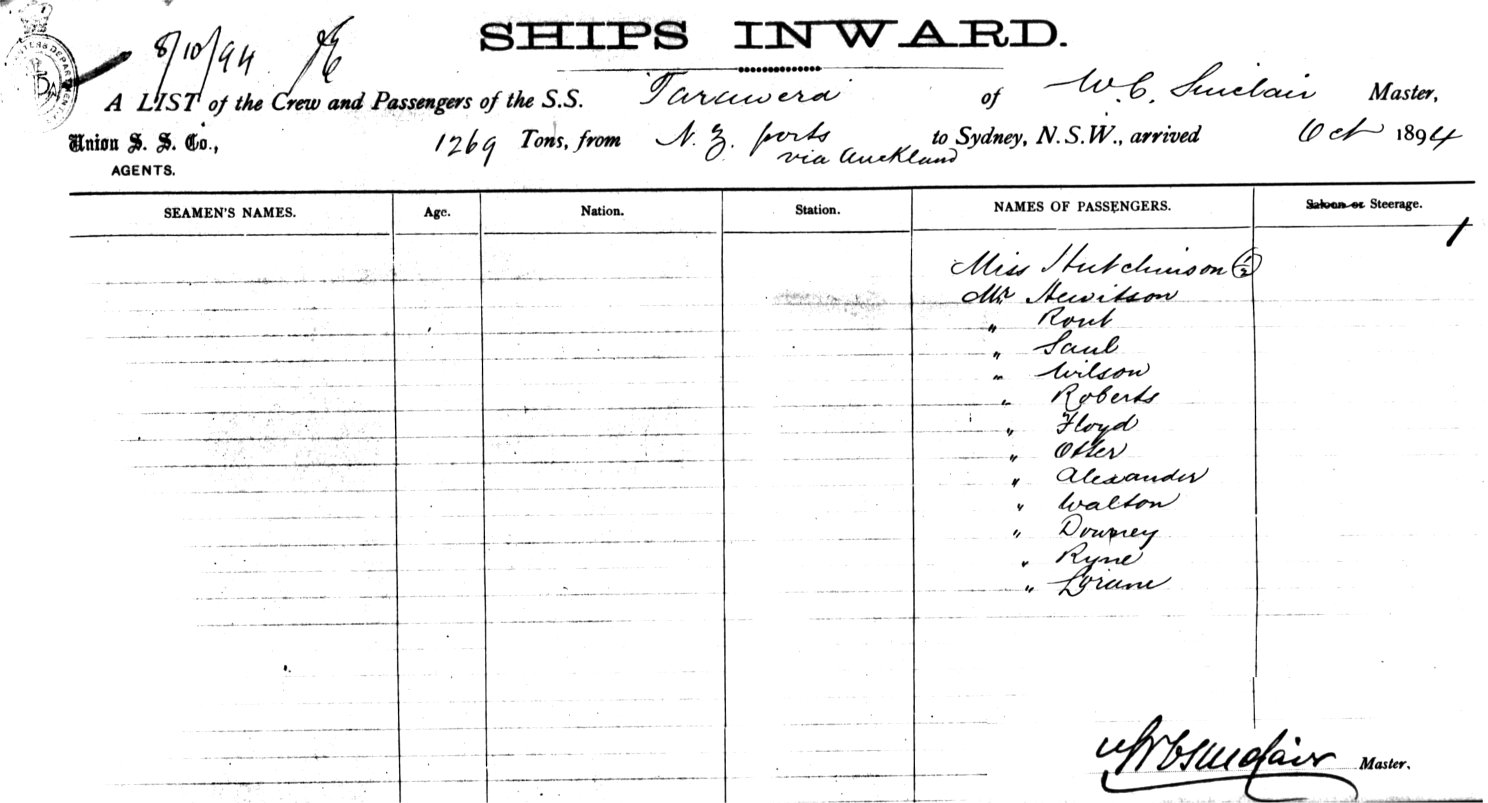 SHIPS INWARD.
8/10/94
A LIST of the Crew and Passengers of the S.S. Tarawera of W. C. Sinclair Master,
Union S. S. Co., 1269 Tons, from N. Z. ports to Sydney, N.S.W., arrived Oct 1894
via Auckland
AGENTS.
SEAMEN'S NAMES. Age. Nation. Station. NAMES OF PASSENGERS. Saloon or Steerage.
1
Miss Hutchinson 1/2
Mr Hewitson
" Rout
" Saul
" Wilson
" Roberts
" Floyd
" Otter
" Alexander
" Walton
" Downey
" Ryne
"
W C Sinclair Master.